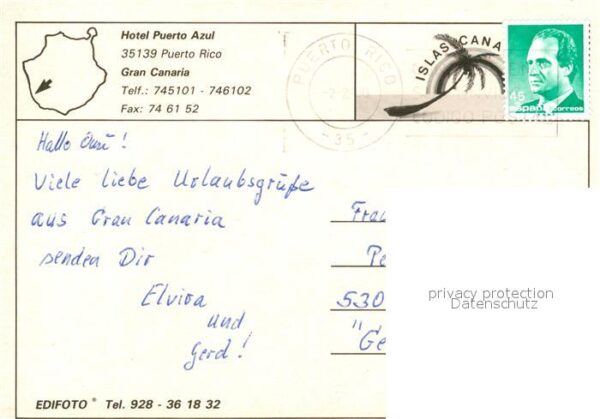 Hotel Puerto Azul
35139 Puerto Rico
Gran Canaria
Telf.: 745101 - 746102
Fax: 74 61 52
PUERTO RICO
- 35 -
ISLAS CANA
45
españa correos
Hallo !
Viele liebe Urlaubsgrüße
aus Gran Canaria
senden Dir
Elvira
und
Gerd!
Frau
Pe
530
"Ge
privacy protection
Datenschutz
EDIFOTO ® Tel. 928 - 36 18 32